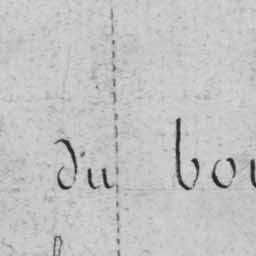 du bou